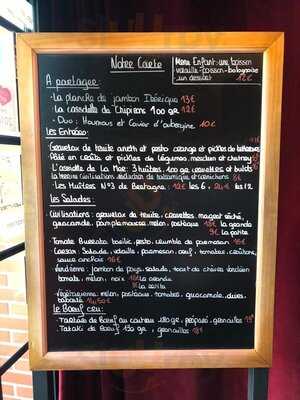 Notre Carte
Menu Enfant: une boisson
volaille - poisson - bolognaise
un dessert 12€
A partager:
. La planche de jambon Ibérique 13€
. La cassolette de Chipirons 100 gr 12€
. Duo: Houmous et Caviar d'aubergine 10€
Les Entrées:
Gravelox de truite aneth et pesto orange et pickles de betteraves
Pâté en croûte et pickles de légumes, mesclun et chutney
. L'assiette de La Mer: 3 huîtres, 100 gr crevettes et bulots
. Les Huîtres N°3 de Bretagne: 12€ les 6, 24€ les 12
Les Salades:
Civilisations: gravelox de truite, crevettes, magret séché,
guacamole, pamplemousse, melon, pastèque 18€ la grande
9€ la petite
. Tomate Burrata basilic, pesto, crumble de parmesan 15€
. Caesar: Salade, volaille, parmesan, oeuf, tomates, croûtons,
sauce anchois 16€
. Vendéenne: jambon de pays, salade, toast de chèvre
tomate, melon, noix la grande
la petite
. Végétarienne: melon, pastèque, tomates, guacamole, olives,
taboulé 14,50€
Le Boeuf cru:
. Tartare de Boeuf au couteau 180 gr, préparé, grenailles
. Tataki de Boeuf 150 gr, grenailles 18€